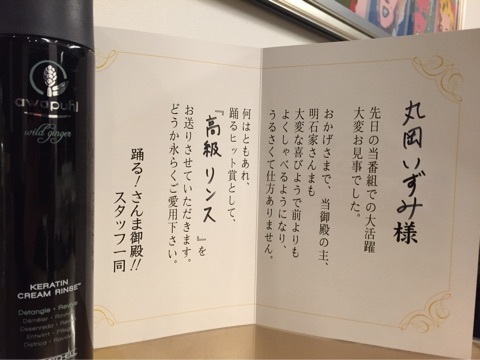 丸岡いずみ様
先日の当番組での大活躍
大変お見事でした。
おかげさまで、当御殿の主、
明石家さんまも
大変な喜びようで前よりも
よくしゃべるようになり、
うるさくて仕方ありません。
何はともあれ、
踊るヒット賞として、
『高級リンス』を
お送りさせていただきます。
どうか永らくご愛用下さい。
踊る!さんま御殿!!
スタッフ一同
awapuhi
wild ginger
KERATIN
CREAM RINSE™
Detangle